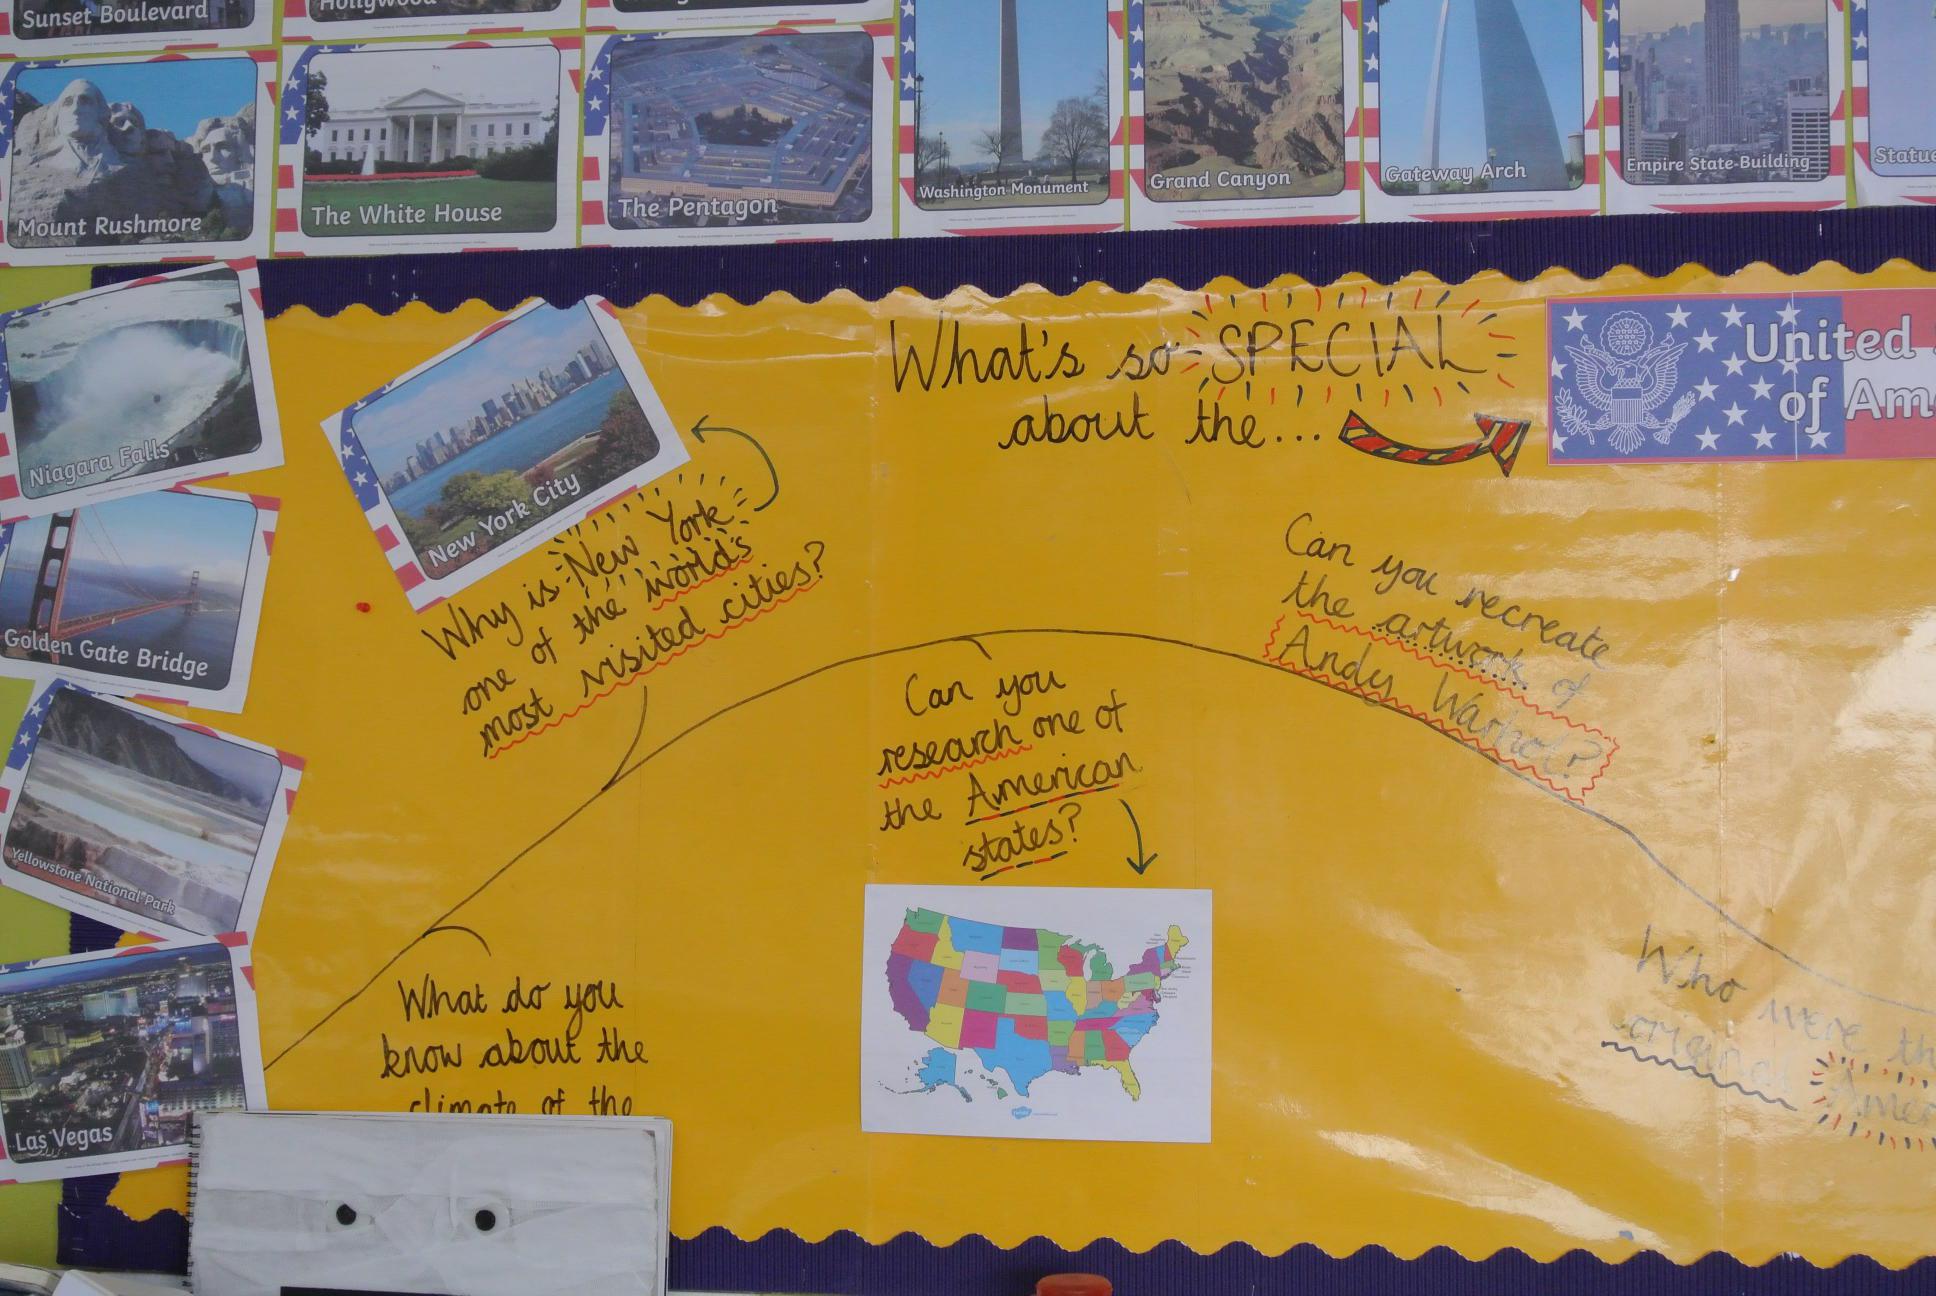 Sunset Boulevard
Hollywood
Mount Rushmore
The White House
The Pentagon
Washington Monument
Grand Canyon
Gateway Arch
Empire State Building
Statue
Niagara Falls
Golden Gate Bridge
Yellowstone National Park
Las Vegas
New York City
What's so SPECIAL
about the...
United
of Am
Why is New York
one of the world's
most visited cities?
Can you
research one of
the American
states?
Can you recreate
the artwork of
Andy Warhol?
What do you
know about the
climate of the
Who were th
original Amer